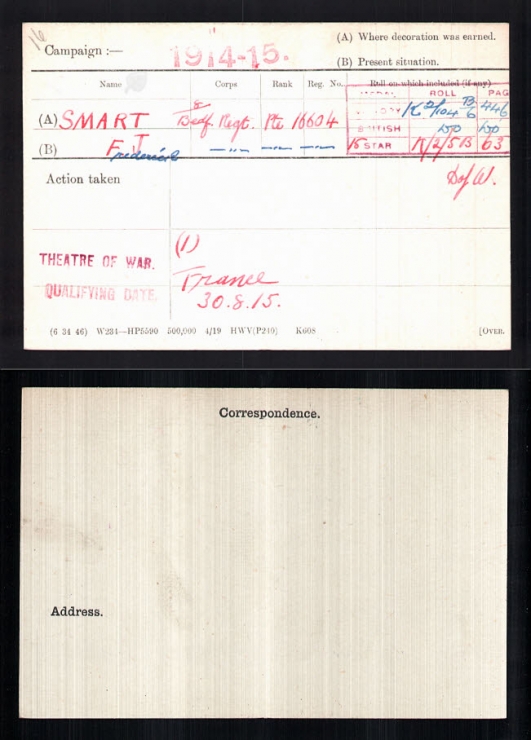 16
(A) Where decoration was earned.
Campaign :— 1914-15.
(B) Present situation.
Name Corps Rank Reg. No. Roll on which included (if any).
MEDAL ROLL PAGE
(A) SMART 8 Bedf Regt. Pte 16604 VICTORY K2/104 B6 446
BRITISH DO DO
(B) F. T. Frederick —"— —"— —"— 15 STAR K/2/5B 63
Action taken D of W.
THEATRE OF WAR. (1)
France
QUALIFYING DATE. 30.8.15.
(6 34 46) W234—HP5590 500,000 4/19 HWV(P240) K608 [OVER.
Correspondence.
Address.